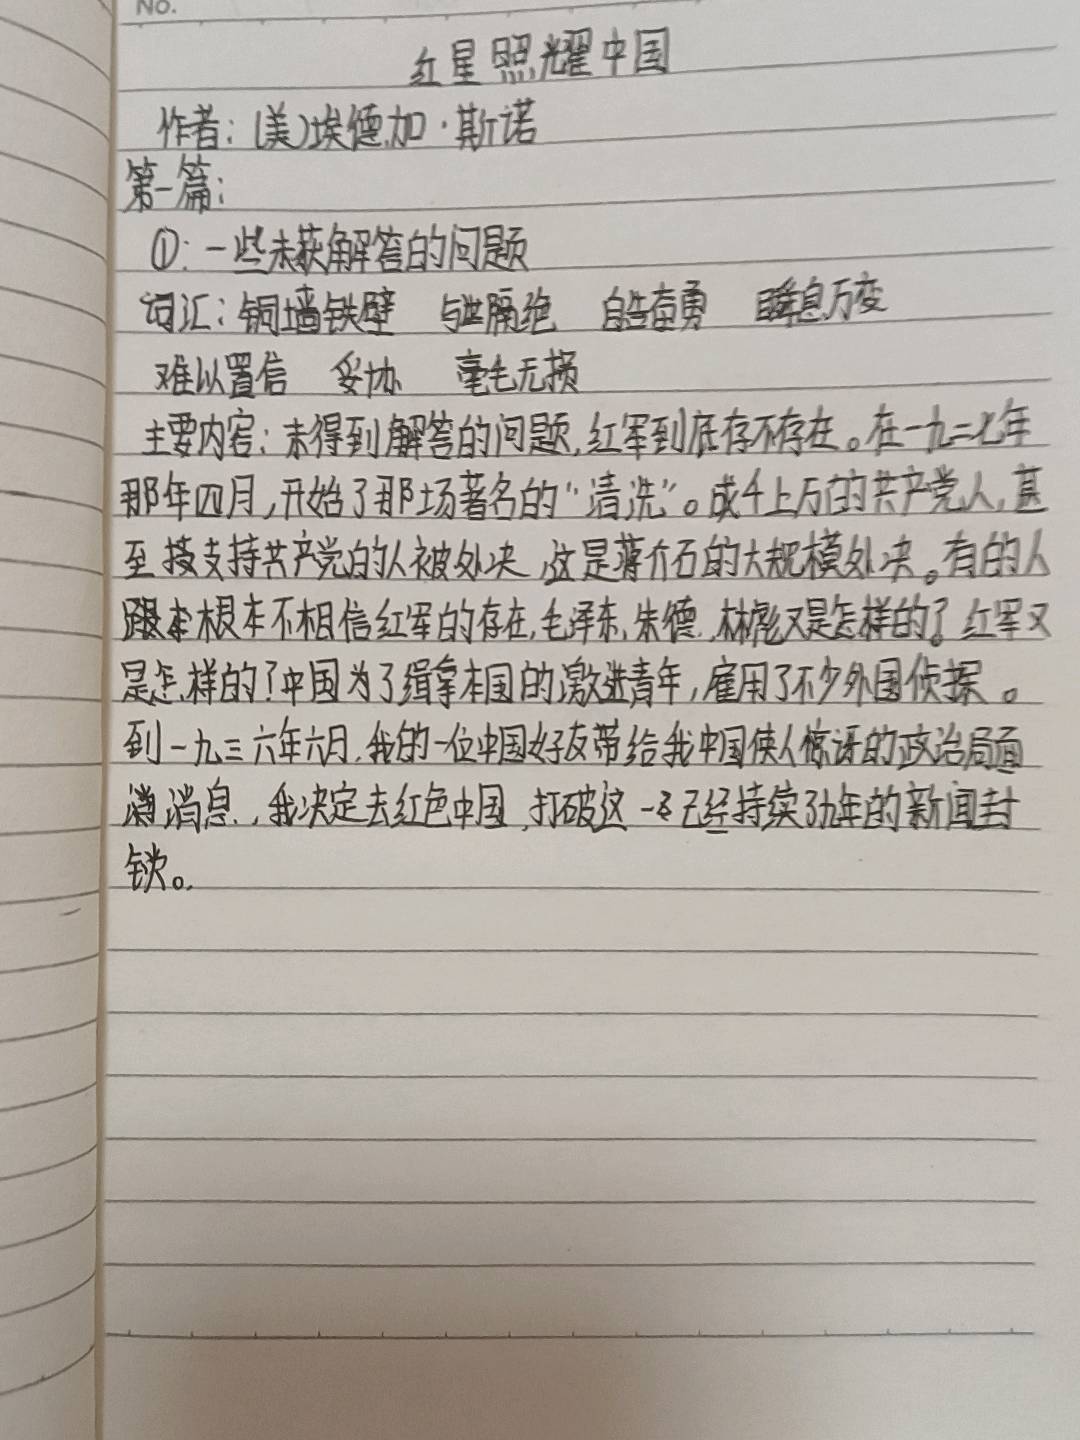 No.
红星照耀中国
作者:(美)埃德加·斯诺
第一篇:
①:一些未获解答的问题
词汇:铜墙铁壁 与世隔绝 自告奋勇 瞬息万变
难以置信 妥协 毫毛无损
主要内容:未得到解答的问题,红军到底存不存在。在一九二七年
那年四月,开始了那场著名的“清洗”。成千上万的共产党人,甚
至接支持共产党的人被处决,这是蒋介石的大规模处决。有的人
根本不相信红军的存在,毛泽东,朱德,林彪又是怎样的?红军又
是怎样的?中国为了缉拿本国的激进青年,雇用了不少外国侦探。
到一九三六年六月,我的一位中国好友带给我中国使人惊讶的政治局面
消息,我决定去红色中国,打破这一已经持续了九年的新闻封
锁。